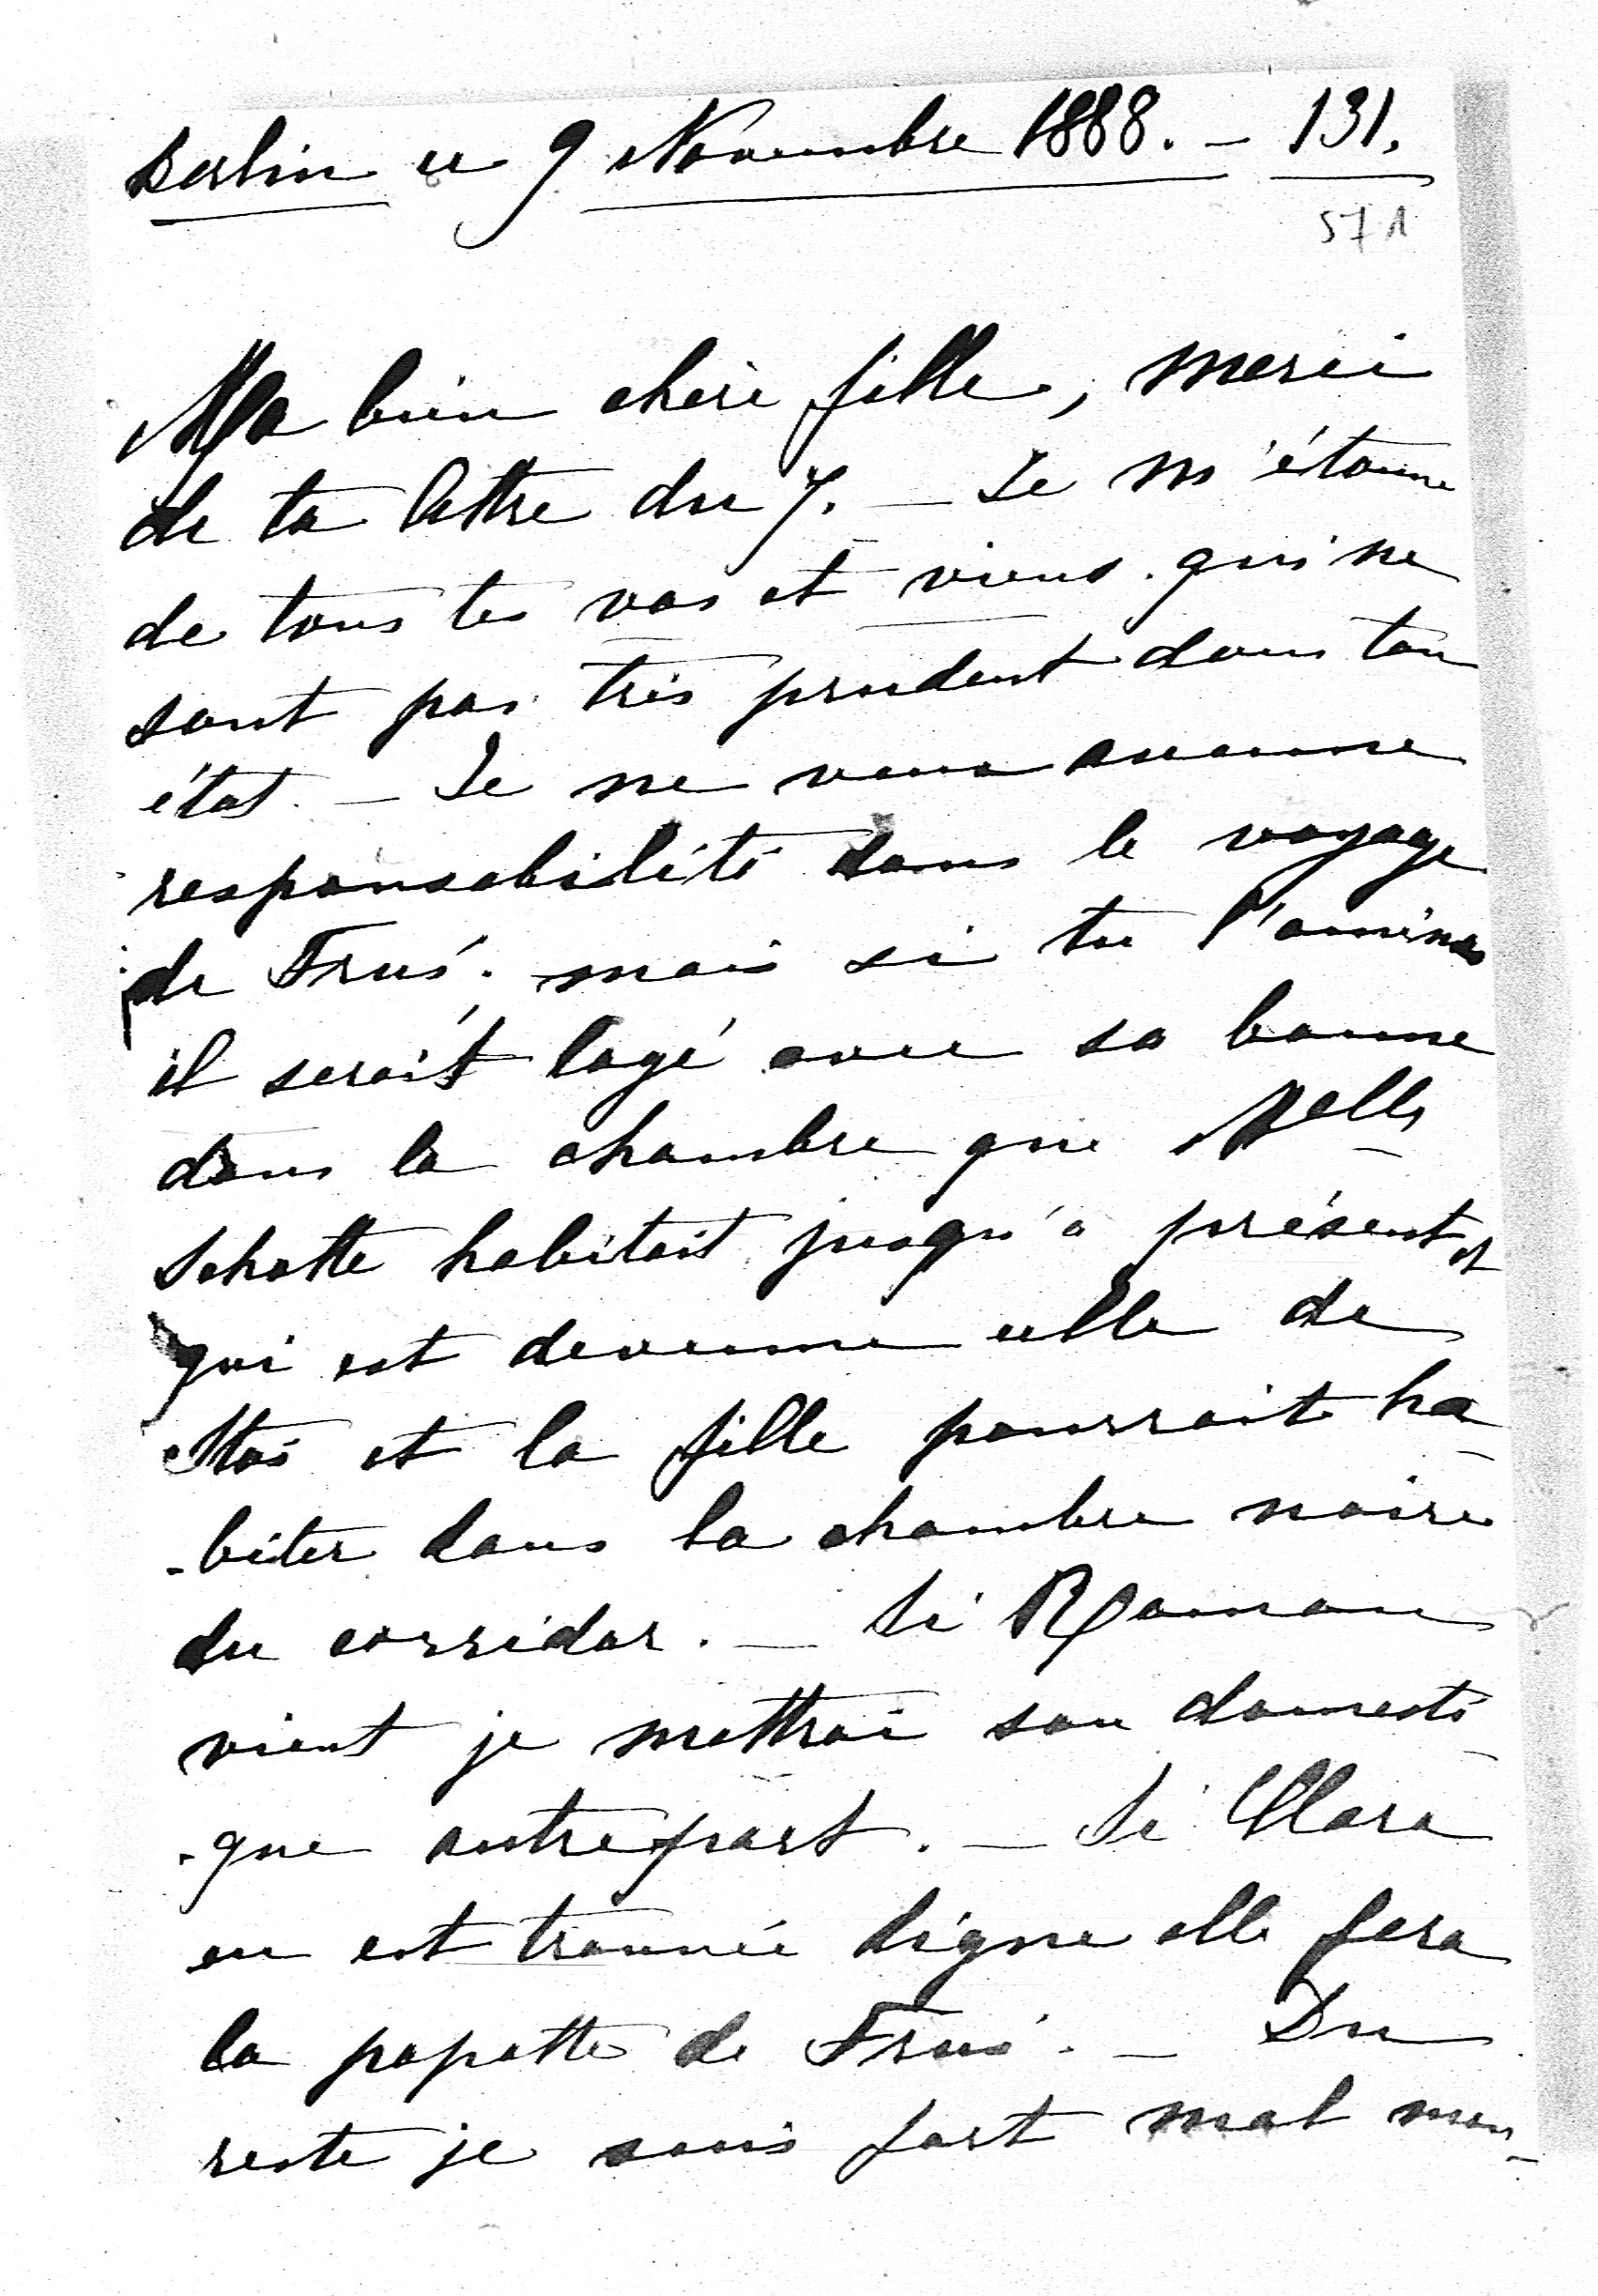 Berlin ce 9 Novembre 1888. – 131.
571
Ma bien chère fille, merci
de ta lettre du 7. – Je m'étonne
de tous tes vas et viens qui ne
sont pas très prudent dans ton
état. – Je ne veux aucune
responsabilité dans le voyage
de . mais si tu l'amènes
il serait logé avec sa bonne
dans la chambre que Melle
Schotte habitait jusqu'à présent et
qui est devenue celle de
et la fille pourrait ha-
-biter dans la chambre noire
du corridor. – Si Roman
vient je mettrai son domesti-
-que autrepart. – Si Clara
en est trouvée digne elle fera
la popotte de . – Du
reste je suis fort mal mon-